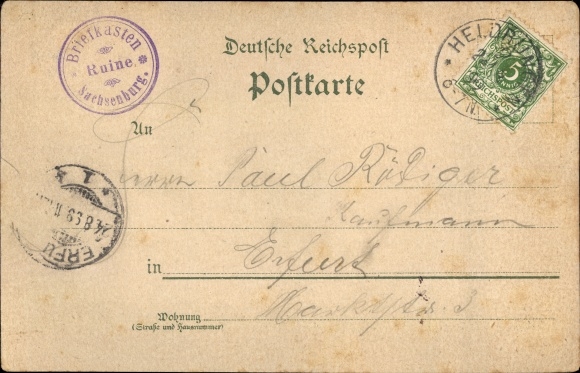 Briefkasten
Ruine
Sachsenburg.
Deutsche Reichspost
Postkarte
HELDRUNGEN
6-7N
5
REICHSPOST
An
Herrn Paul Rödiger
Kaufmann
ERFU
24.8.93
in Erfurt
Marktstr. 3
Wohnung
(Straße und Hausnummer)